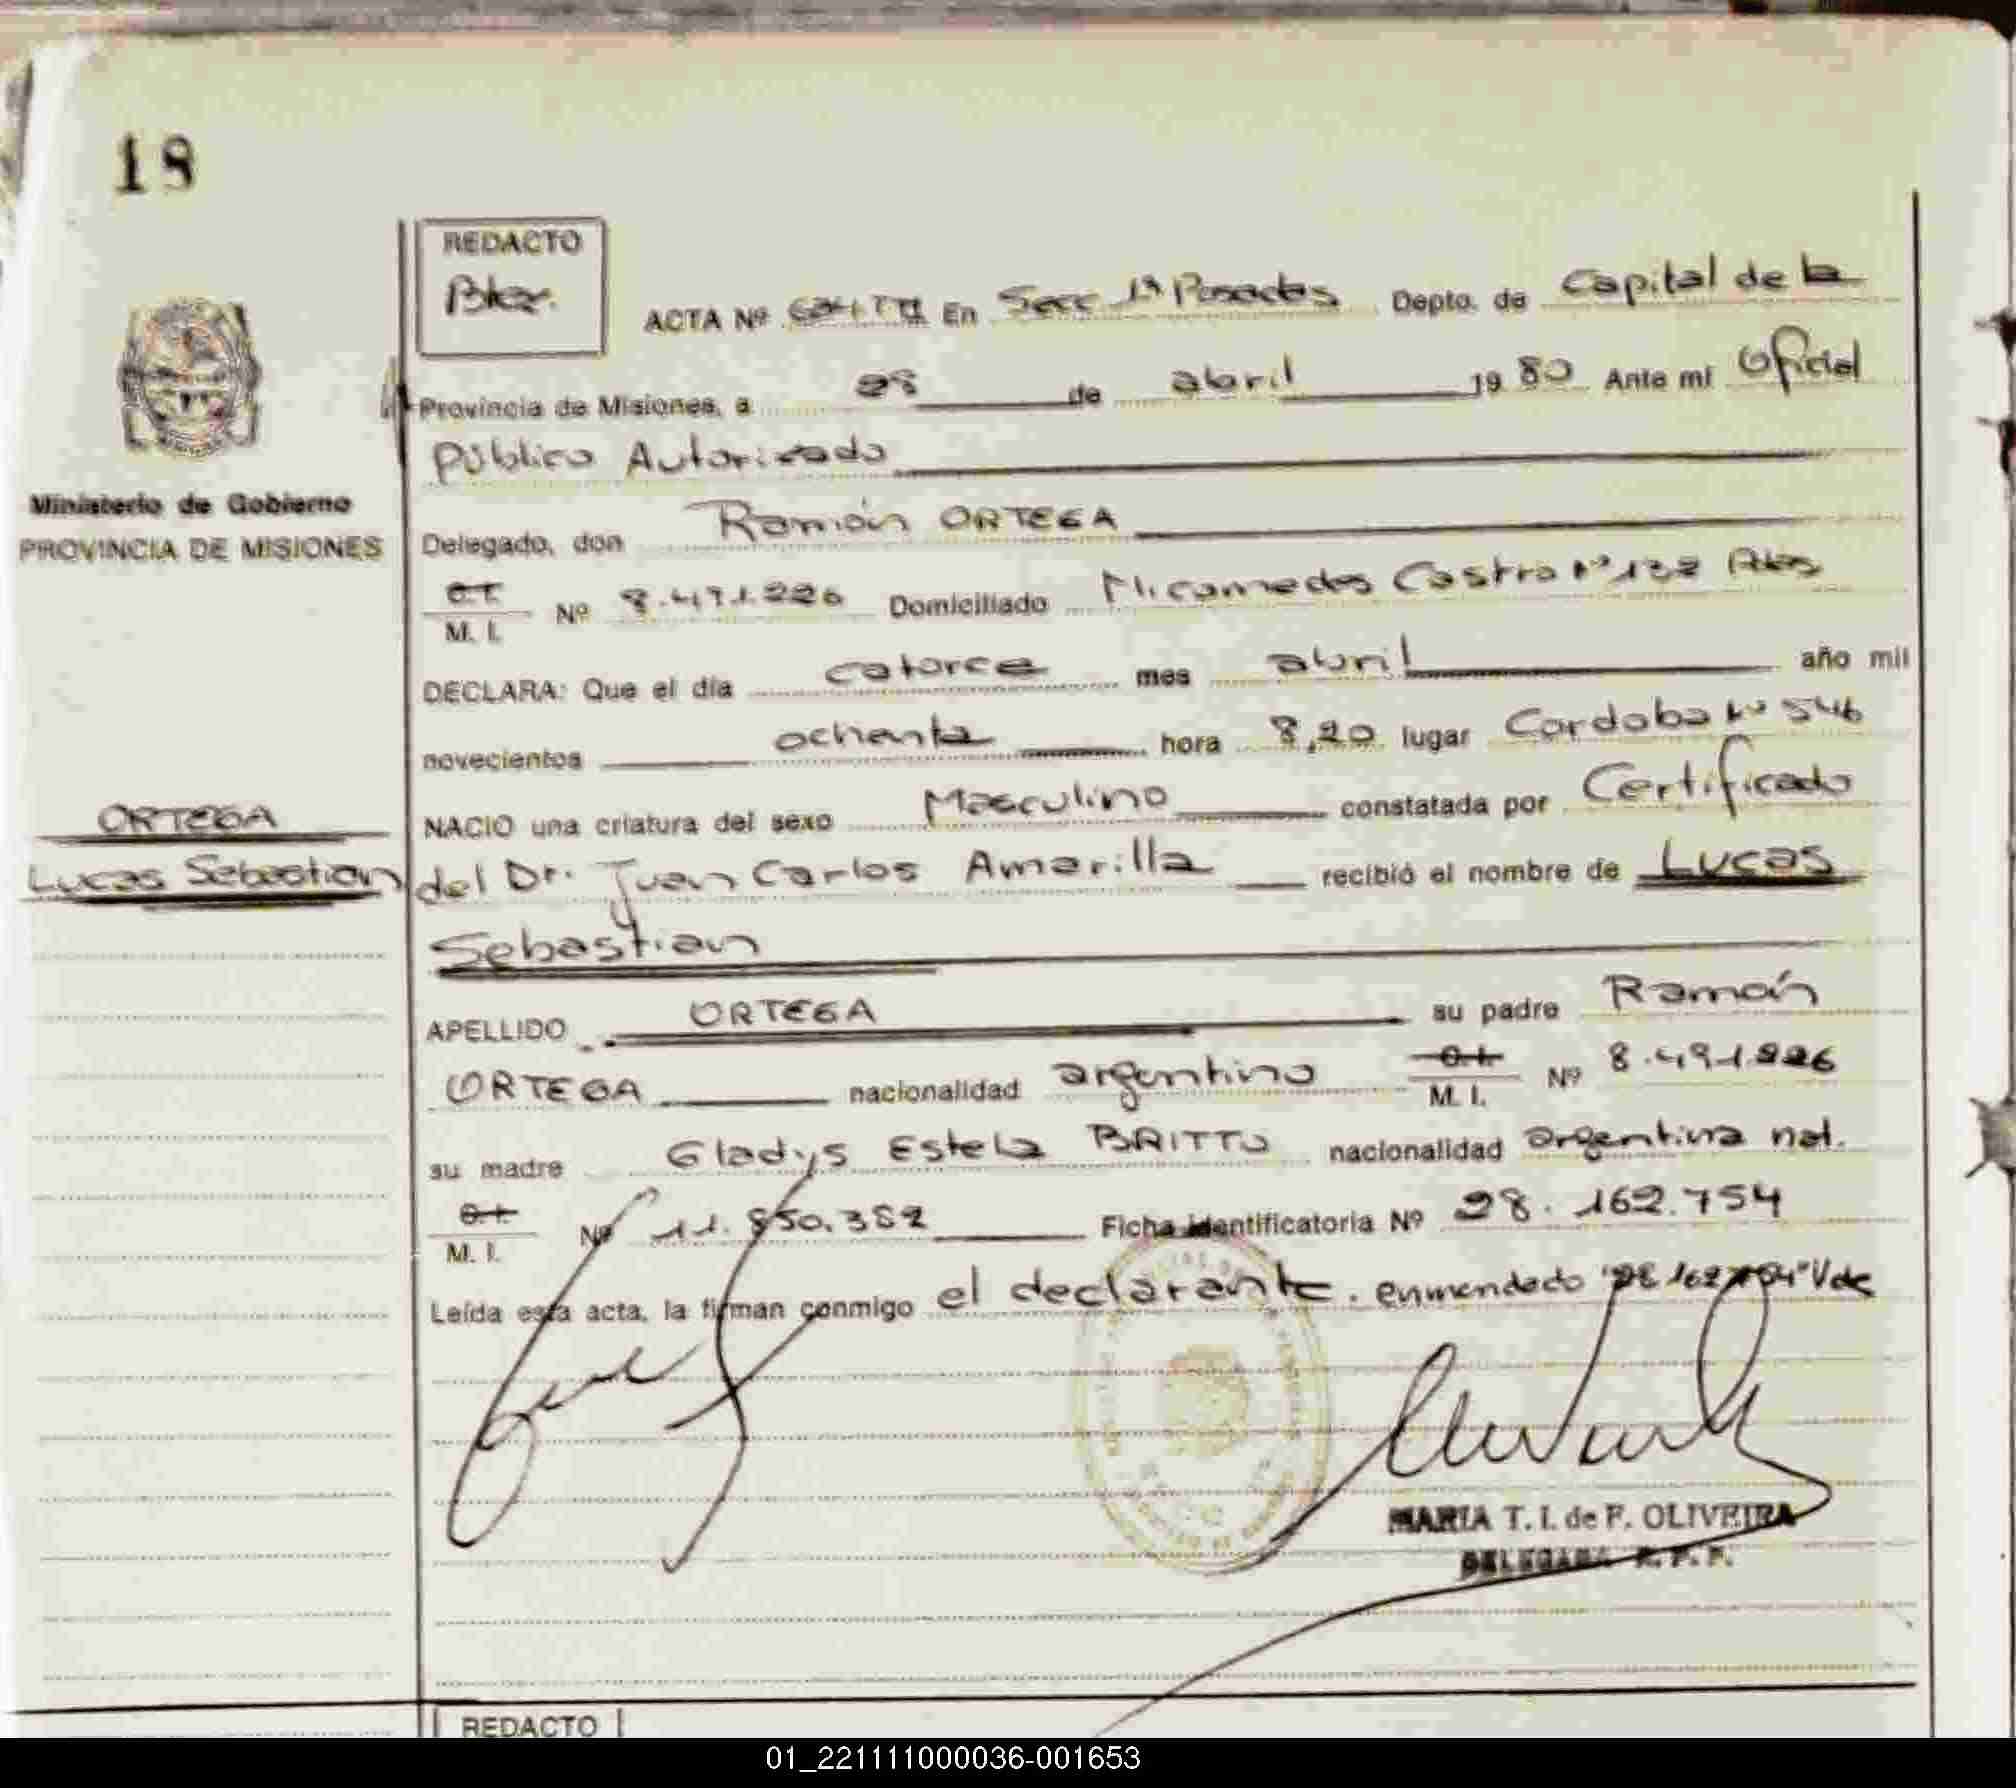 18
REDACTO
ACTA Nº En Secc 1ª Posadas Depto. de Capital de la
Provincia de Misiones, a 28 de abril 1980 Ante mí Oficial
Público Autorizado
Ministerio de Gobierno
PROVINCIA DE MISIONES
Delegado, don Ramón ORTEGA
C.I.
M. I. Nº 8.491.226 Domiciliado Nicomedes Castro Nº 132
DECLARA: Que el día catorce mes abril año mil
novecientos ochenta hora 8,20 lugar Cordoba Nº 546
NACIO una criatura del sexo Masculino constatada por Certificado
ORTEGA
Lucas Sebastian
del Dr. Juan Carlos Amarilla recibió el nombre de Lucas
Sebastian
APELLIDO ORTEGA su padre Ramón
ORTEGA nacionalidad argentino C.I. M. I. Nº 8.491.226
su madre Gladys Estela BRITTO nacionalidad argentina nat.
C.I.
M. I. Nº 11.850.382 Ficha identificatoria Nº 28.162.754
Leída esta acta, la firman conmigo el declarante. enmendado Vale
MARIA T. I. de F. OLIVEIRA
DELEGADA R. P. P.
REDACTO
01_221111000036-001653